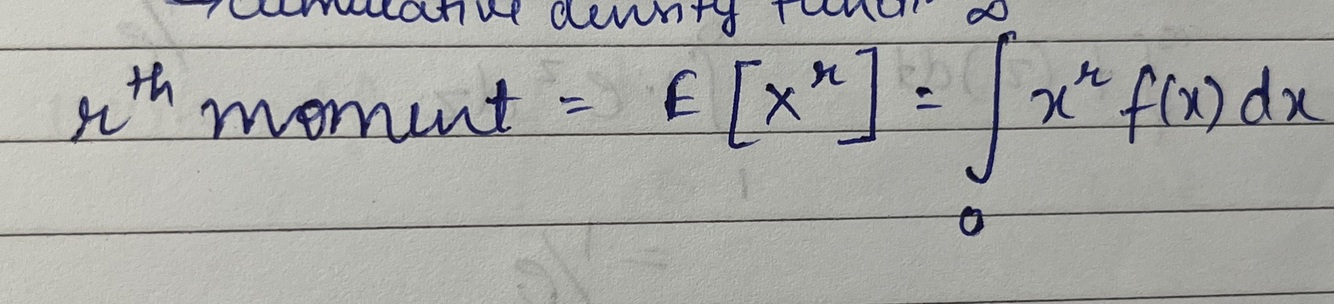 → Cumulative density
r^th moment = E[X^r] = ∫_0^∞ x^r f(x) dx